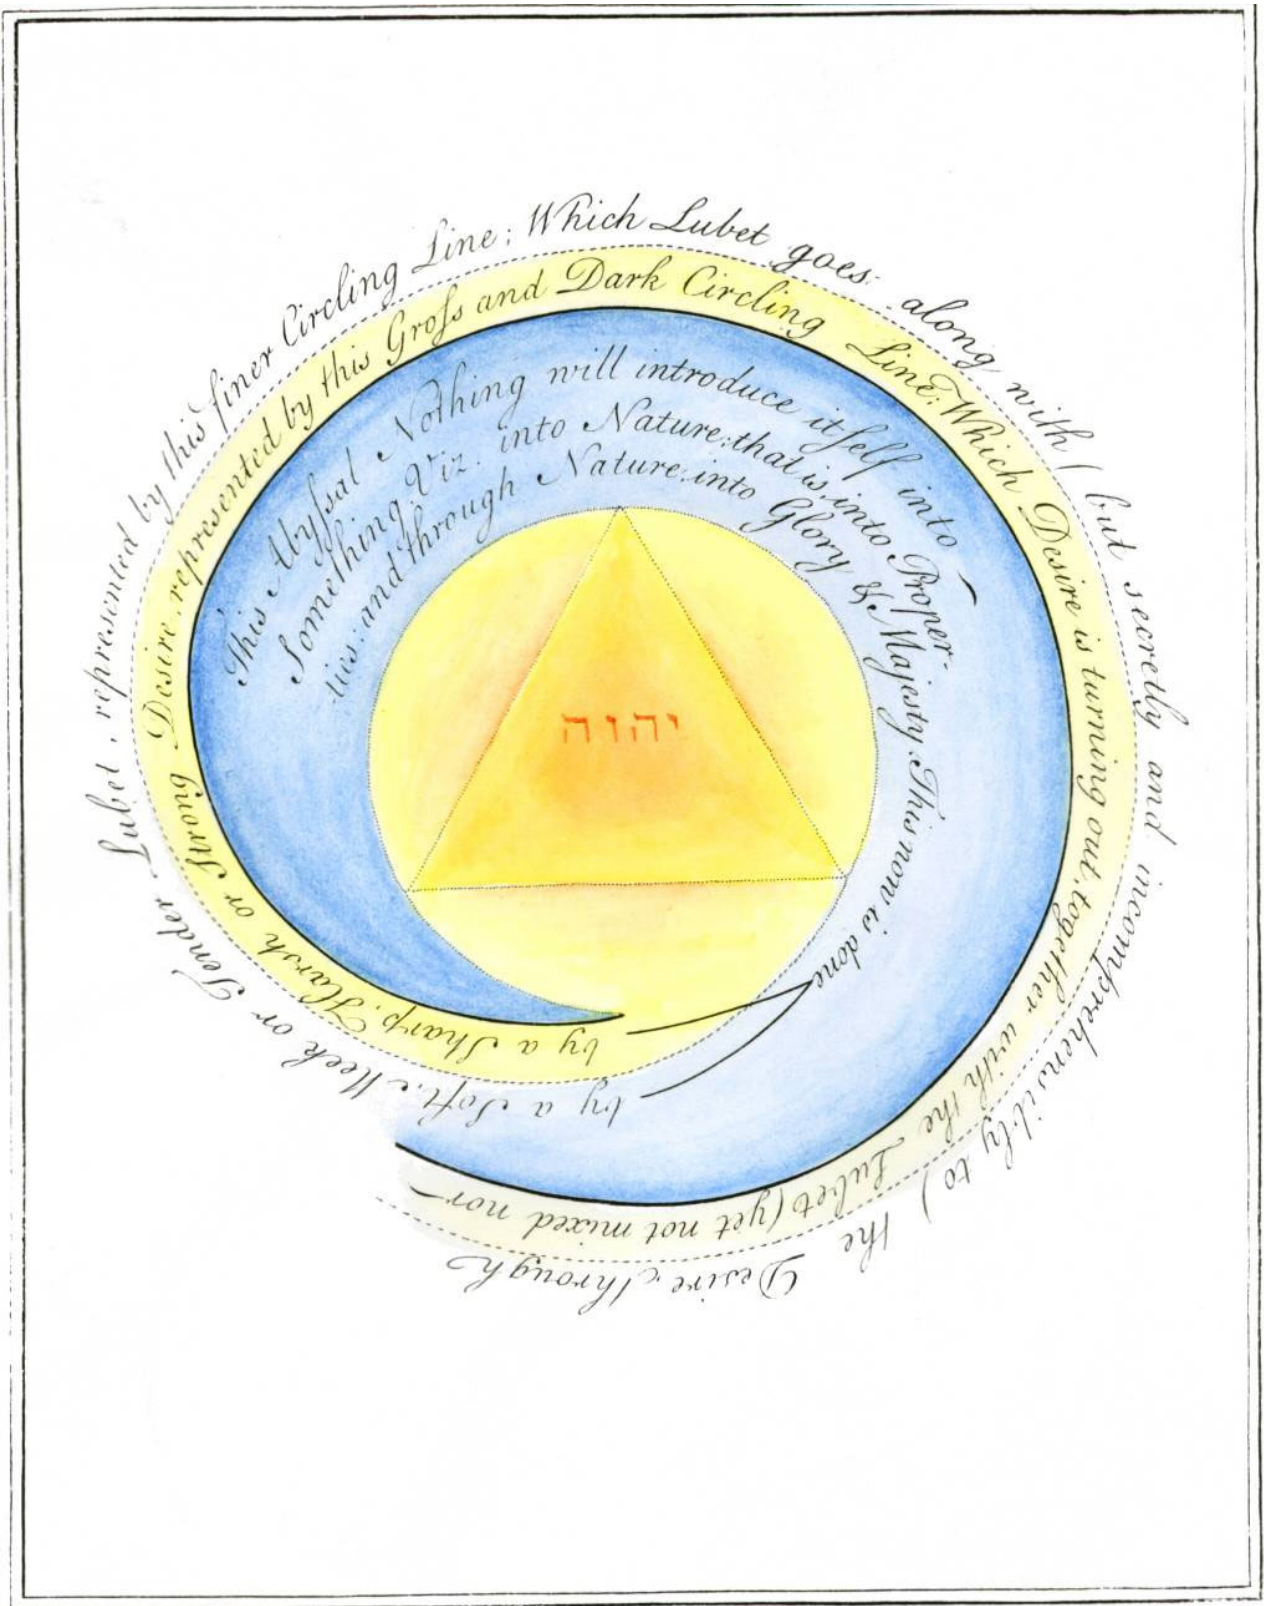 This Abyſsal Nothing will introduce itſelf into
Something, Viz. into Nature: that is, into Proper-
ties: and through Nature: into Glory & Majesty. This now is done
by a Sharp, Harsh or Strong Desire, represented by this Groſs and Dark Circling Line: Which Desire is turning out, together with the Lubet (yet not mixed nor
by a Soft, Meek or Tender Lubet, represented by this finer Circling Line: Which Lubet goes along with (but secretly and incomprehensibly to) the Desire, through
יהוה